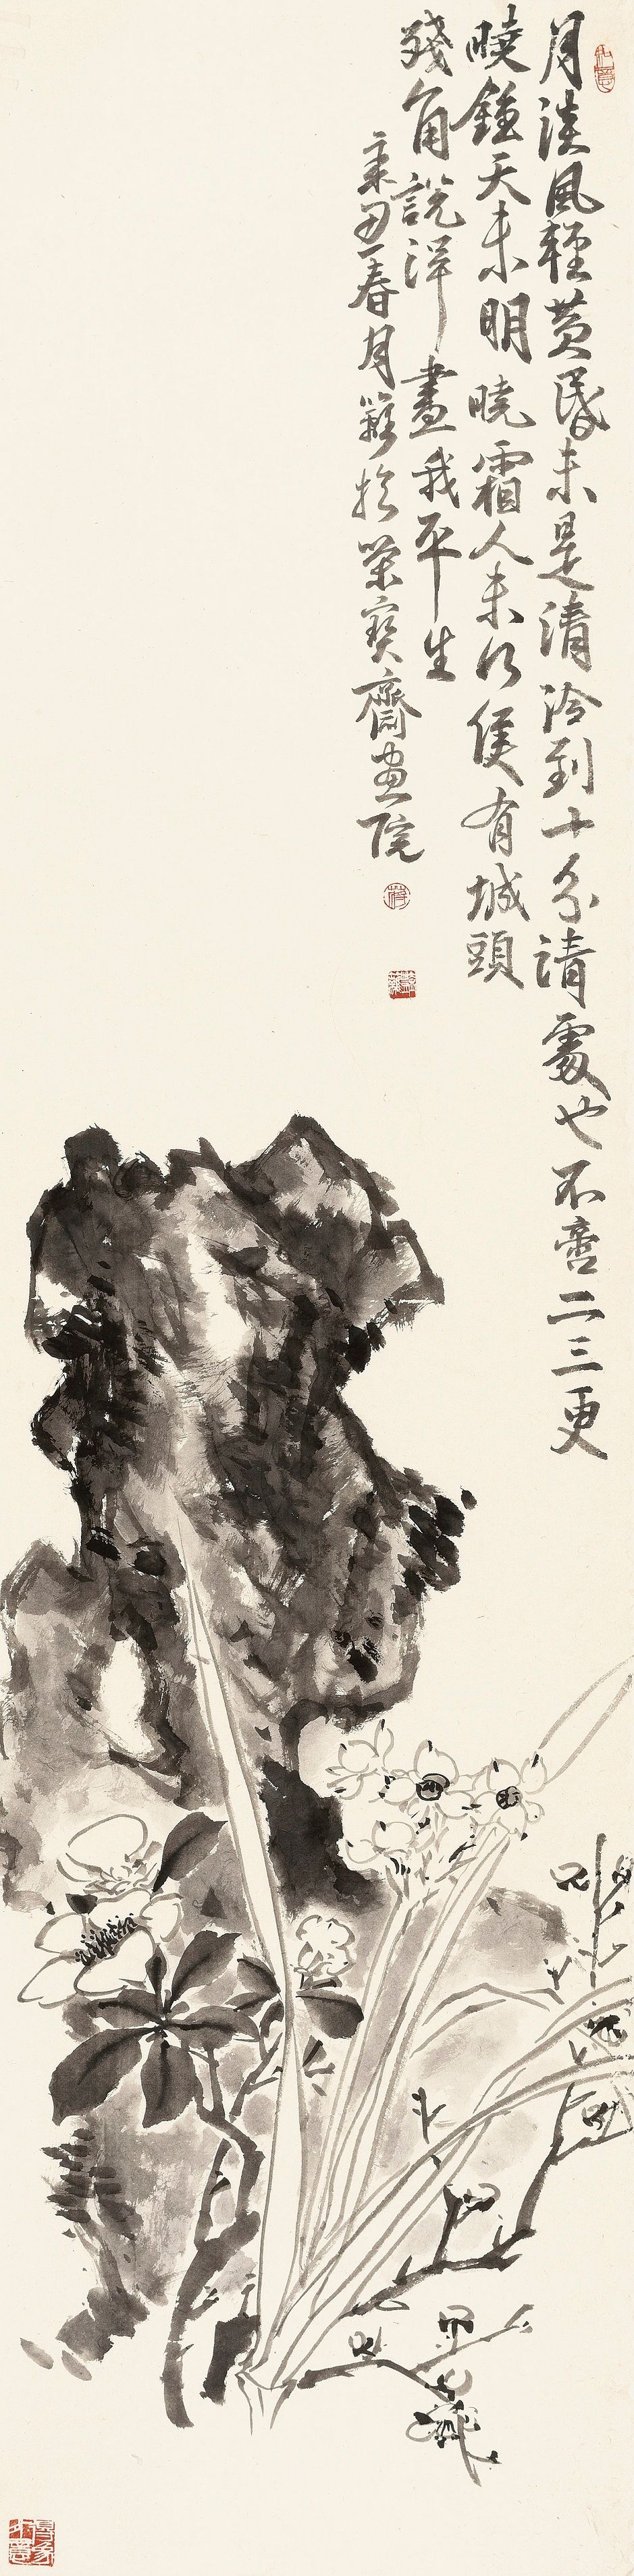 月淡風輕黃昏未是清泠到十分請處也不啻二三更
曉鐘天未明曉霜人未行侯有城頭
殘角說得盡我平生
辛丑春月籟於榮寶齋畫院